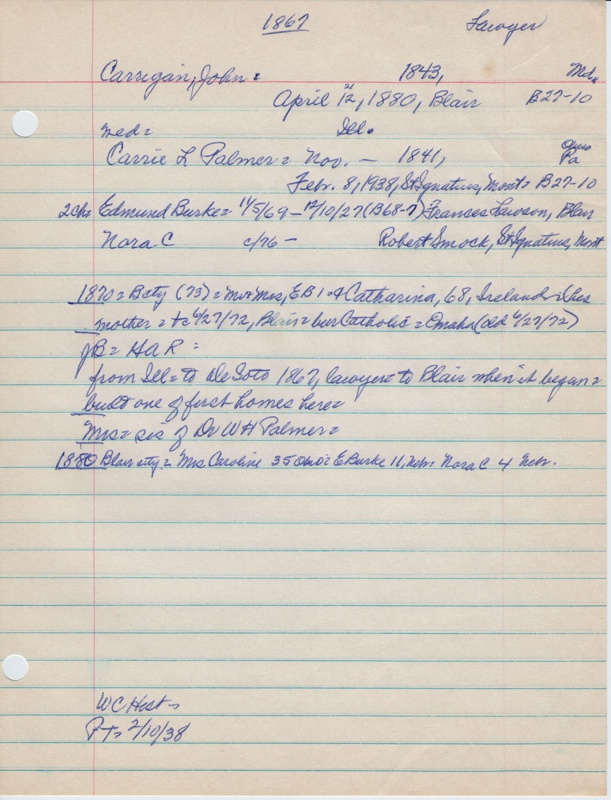 1867 Lawyer
Carrigan, John = 1843, Md.
April 12, 1880, Blair B27-10
21
med = Ill.
Carrie L Palmer = Nov. - 1841, Pa
Ohio
Febr. 8, 1938, St Ignatius, Mont = B27-10
2ch = Edmund Burke = 11/5/69 - 12/10/27 (B68-7) Frances Lawson, Blair
Nora C c/76 - Robert Smock, St Ignatius, Mont
1870 = Bcty (73) = Mr & Mrs, E B 1 = & Catharina, 68, Ireland = his
mother = 4/27/72, Blair = bur Catholic = Omaha (old 4/27/72)
JB = HAR =
from Ill = to DeSoto 1867, lawyer = to Blair when it began =
built one of first homes here =
Mrs = sis of Dr W H Palmer =
1880 Blair city = Mrs Caroline 35 Ohio = E Burke 11, Nebr. Nora C 4 Nebr.
WC Hist =
PT = 2/10/38